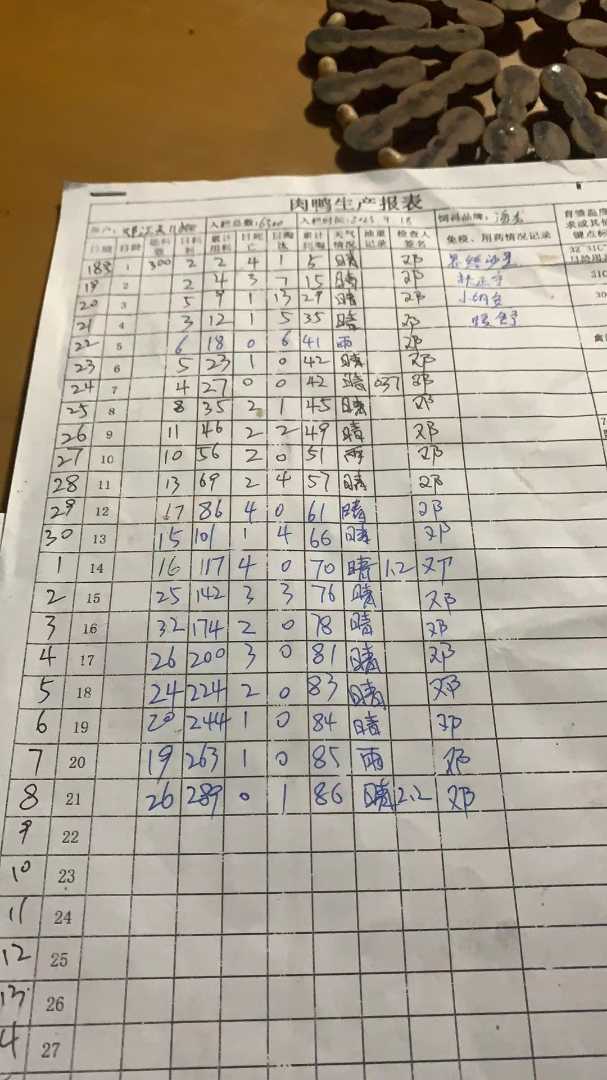 肉鸭生产报表
入栏总数:6300 入栏时间:2023.9.18 饲料品牌:
日龄 累计用料 日死亡 日淘汰 累计死淘 天气情况 抽重记录 检查人签名 免疫、用药情况记录
1 300 2 2 4 1 5 晴 邓
19 2 2 4 3 7 15 晴 邓
20 3 5 9 1 13 29 晴 邓
21 4 3 12 1 5 35 晴 邓
22 5 6 18 0 6 41 雨 邓
23 6 5 23 1 0 42 晴 邓
24 7 4 27 0 0 42 晴 037 邓
25 8 8 35 2 1 45 晴 邓
26 9 11 46 2 2 49 晴 邓
27 10 10 56 2 0 51 雨 邓
28 11 13 69 2 4 57 晴 邓
29 12 17 86 4 0 61 晴 邓
30 13 15 101 1 4 66 晴 邓
1 14 16 117 4 0 70 晴 1.2 邓
2 15 25 142 3 3 76 晴 邓
3 16 32 174 2 0 78 晴 邓
4 17 26 200 3 0 81 晴 邓
5 18 24 224 2 0 83 晴 邓
6 19 20 244 1 0 84 晴 邓
7 20 19 263 1 0 85 雨 邓
8 21 26 289 0 1 86 晴 2.2 邓
9 22
10 23
11 24
12 25
13 26
4 27